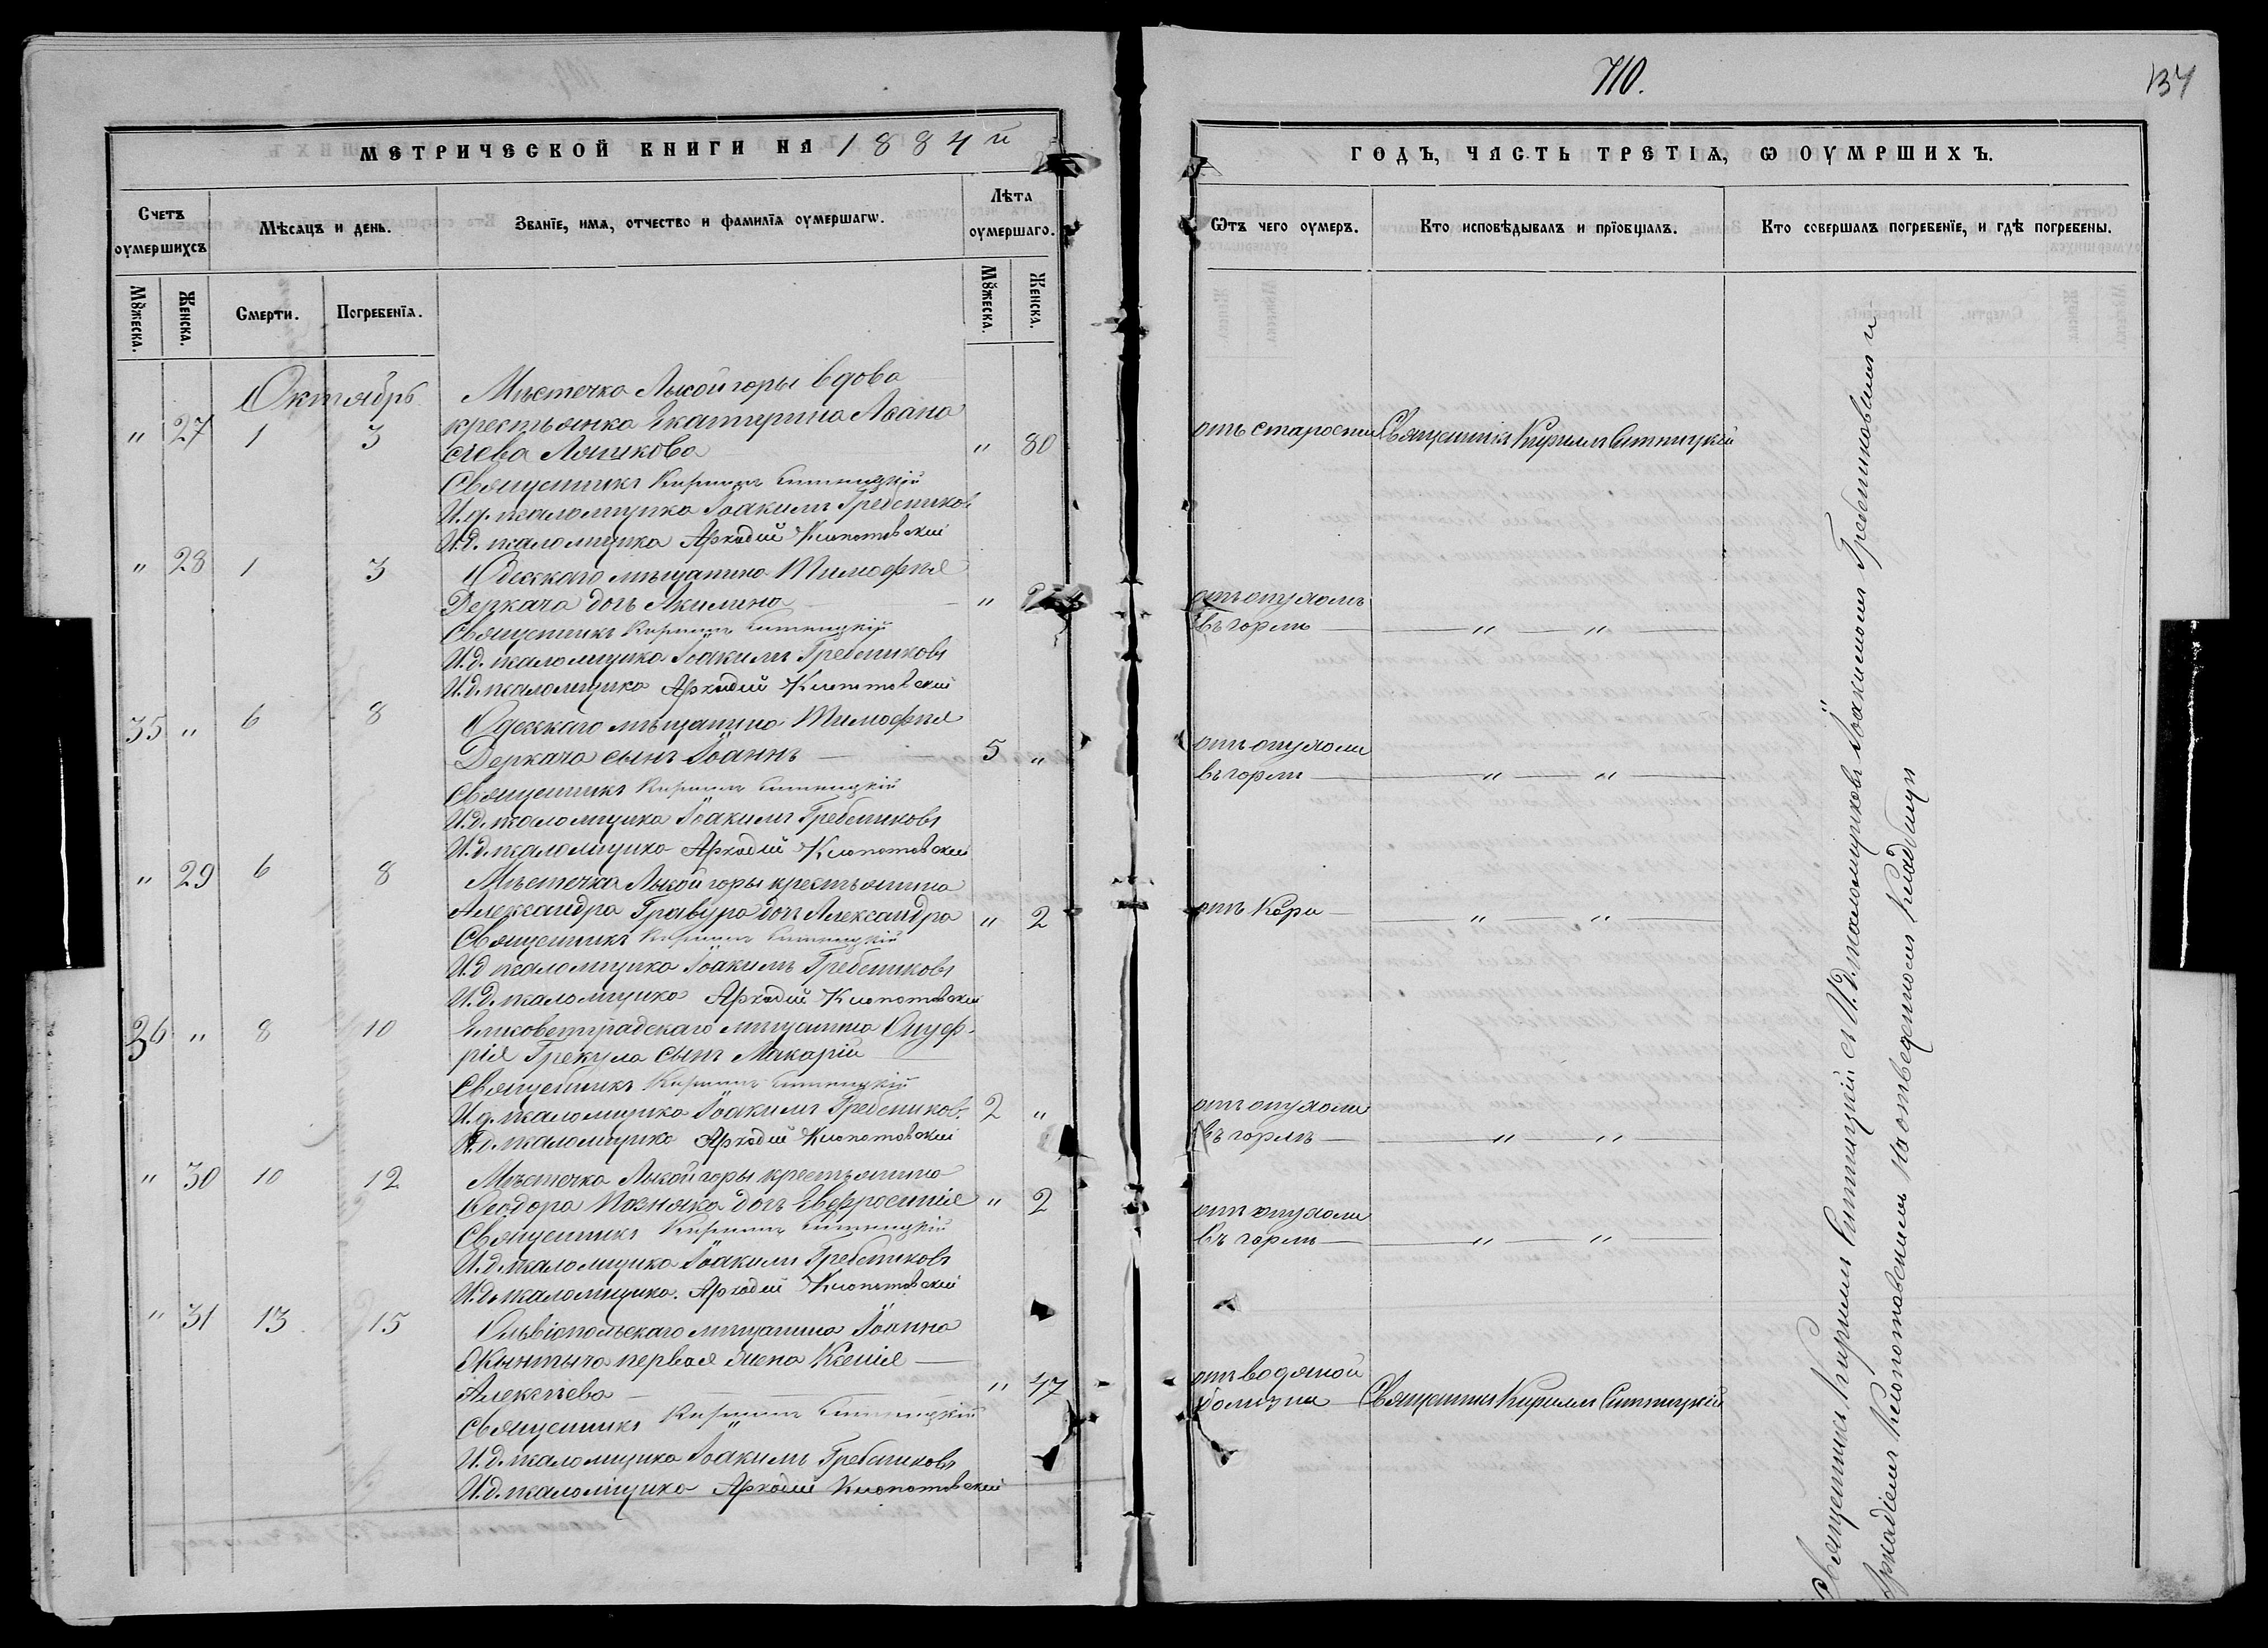 710.
134
МЕТРИЧЕСКОЙ КНИГИ НА 1884 й
ГОДЪ, ЧАСТЬ ТРЕТІЯ, Ѡ ОУМРШИХЪ.
Счетъ оумершихсъ
Мѣсяцъ и день.
Званїе, имя, отчество и фамилїя оумершагѡ.
Лѣта оумершаго.
Ѿтъ чего оумеръ.
Кто исповѣдывалъ и прїобщалъ.
Кто совершалъ погребенїе, и гдѣ погребены.
Мꙋжеска. Женска. Смерти. Погребенїя. Мꙋжеска. Женска.
Октябрь
Мѣстечка Лысой горы вдова
" 27 1 3 крестьянка Екатерина Аѳана
сіева Ляшкова " 80 отъ старости Священникъ Кириллъ Ситницкій
Священникъ Кириллъ Ситницкій
И.д. псаломщика Іоакимъ Гребениковъ
И.д. псаломщика Аркадій Клопотовскій
" 28 1 3 Одесскаго мѣщанина Тимофея
Деркача дочь Акилина " отъ опухоли
въ горлѣ — " — " —
Священникъ Кириллъ Ситницкій
И.д. псаломщика Іоакимъ Гребениковъ
И.д. псаломщика Аркадій Клопотовскій
35 " 6 8 Одесскаго мѣщанина Тимофея
Деркача сынъ Іоаннъ 5 " отъ опухоли
въ горлѣ — " — " —
Священникъ Кириллъ Ситницкій
И.д. псаломщика Іоакимъ Гребениковъ
И.д. псаломщика Аркадій Клопотовскій
" 29 6 8 Мѣстечка Лысой горы крестьянина
Александра Гравура дочь Александра " 2 отъ кори — " — " —
Священникъ Кириллъ Ситницкій
И.д. псаломщика Іоакимъ Гребениковъ
И.д. псаломщика Аркадій Клопотовскій
36 " 8 10 Елисоветградскаго мѣщанина Онуф-
рія Грекула сынъ Макарій
Священникъ Кириллъ Ситницкій
И.д. псаломщика Іоакимъ Гребениковъ 2 " отъ опухоли
И.д. псаломщика Аркадій Клопотовскій въ горлѣ — " — " —
" 30 10 12 Мѣстечка Лысой горы крестьянина
Ѳеодора Позняка дочь Евфросинія " 2 отъ опухоли
Священникъ Кириллъ Ситницкій въ горлѣ — " — " —
И.д. псаломщика Іоакимъ Гребениковъ
И.д. псаломщика Аркадій Клопотовскій
" 31 13 15 Ольвіопольскаго мѣщанина Іоанна
первая жена Ксенія
Алексіева " 47 отъ водяной
болѣзни Священникъ Кириллъ Ситницкій
Священникъ Кириллъ Ситницкій
И.д. псаломщика Іоакимъ Гребениковъ
И.д. псаломщика Аркадій Клопотовскій
Священникъ Кириллъ Ситницкій съ И.д. псаломщиковъ Іоакимомъ Гребениковымъ и
Аркадіемъ Клопотовскимъ на отведенномъ кладбищѣ